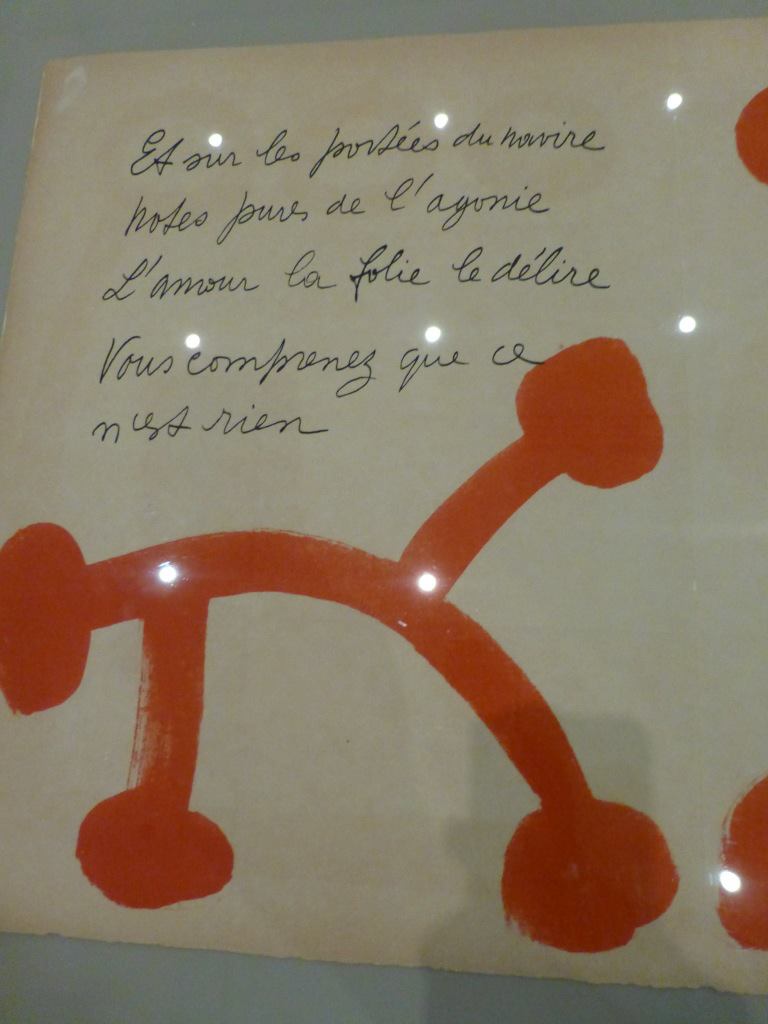 Et sur les portées du navire
notes pures de l'agonie
L'amour la folie le délire
Vous comprenez que ce
n'est rien